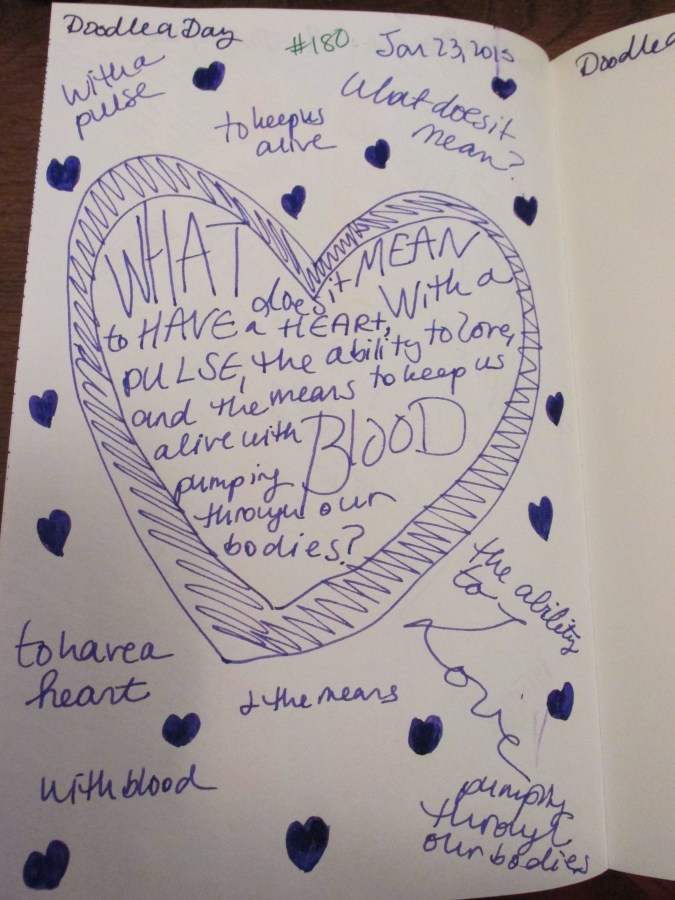 Doodle a Day
#180
Jan 23, 2015
Doodle a
With a
pulse
to keep us
alive
What does it
mean?
WHAT does it MEAN
to HAVE a HEART, With a
PULSE, the ability to love,
and the means to keep us
alive with BLOOD
pumping
through our
bodies?
the ability
to
Love
to have a
heart
& the means
with blood
pumping
through
our bodies